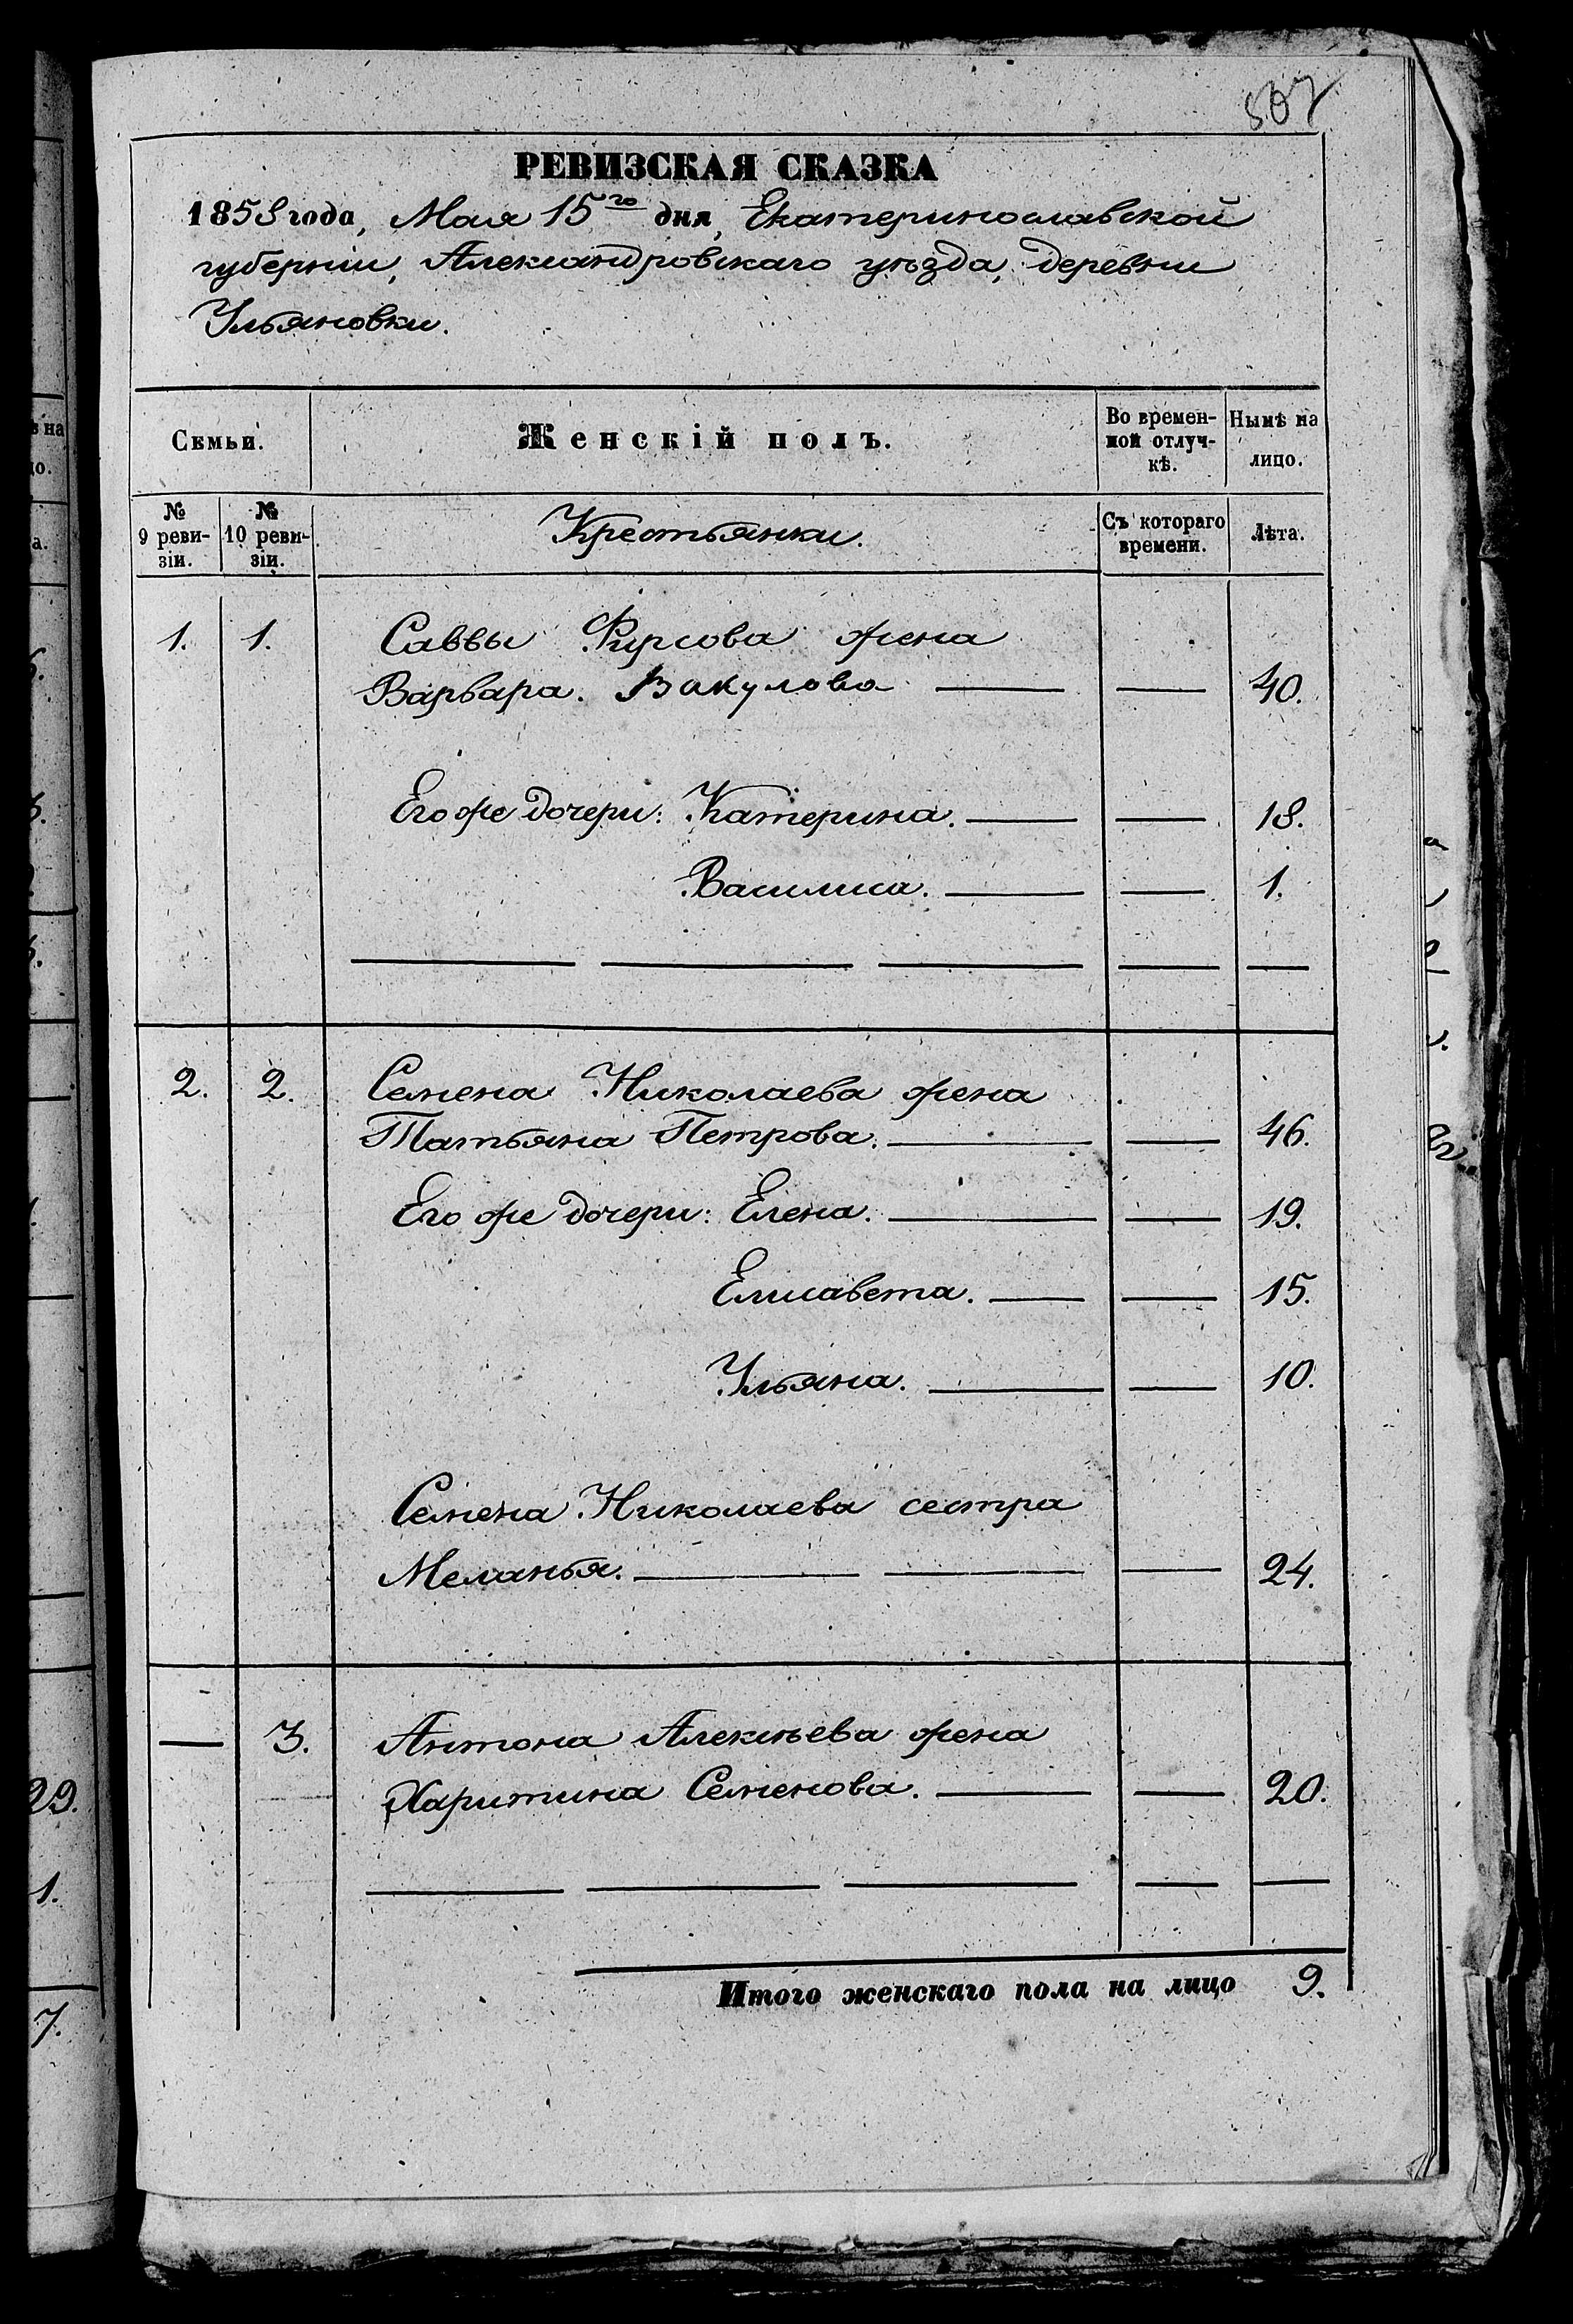 507
РЕВИЗСКАЯ СКАЗКА
1858 года, Мая 15го дня, Екатеринославской
губерніи, Александровскаго уѣзда, деревни
Ульяновки.
Семьи.
Женскій полъ.
Во времен-
ной отлуч-
кѣ.
Нынѣ на
лицо.
№
9 реви-
зіи.
№
10 реви-
зіи.
Крестьянки.
Съ котораго
времени.
Лѣта.
1. 1. Саввы Фирсова жена
Варвара Вакулова — — 40.
Его же дочери: Катерина. — — 18.
Василиса. — — 1.
2. 2. Семена Николаева жена
Татьяна Петрова. — — 46.
Его же дочери: Елена. — — 19.
Елисавета. — — 15.
Ульяна. — — 10.
Семена Николаева сестра
Меланья. — — — 24.
— 3. Антона Алексѣева жена
Харитина Семенова. — — 20.
Итого женскаго пола на лицо 9.